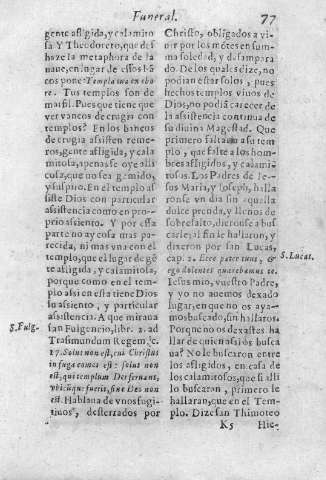 Funeral. 77
gente afligida, y calamito
sa Y Theodoreto, que des
haze la metaphora de la
naue, en lugar de essos bã
cos pone Templa tua in ebo
re. Tus templos son de
marfil. Pues que tiene que
ver vancos de crugia con
templos? En los bancos
de crugia assisten reme-
ros, gente afligida, y cala
mitosa, apenas se oye alli
cosa, que no sea gemido,
y suspiro. En el templo as
siste Dios con particular
assistencia como en pro-
prio assiento. Y por esta
parte no ay cosa mas pa-
recida, ni mas vna con el tẽ-
plo, que el lugar de gẽ-
te afligida, y calamitosa,
porque como en el tem-
plo assi en esta tiene Dios
su assiento, y particular
assistencia. A que mirana
san Fulgencio, lib. 2. ad
Trasimundum Regem, c.
17. Solus non est, cui Christus
in fuga comes est: solus non
est, qui templum Dei seruans,
vbicũque fueris, sine Deo non
est. Hablaua de vnos fugi-
tiuos, desterrados por
S. Fulg.
Christo, obligados a vi-
uir por los mõtes en sum-
ma soledad, y desampara
do. De los quales dize, no
podian estar solos, pues
hechos templos viuos de
Dios, no podia carecer de
la assistencia continua de
su diuina Magestad. Que
primero falta a su tem
plo, que falte a los hom-
bres afligidos, y calami-
tosos. Los Padres de Ie-
sus Maria, y Ioseph, halla
ronse vn dia sin aquella
dulce prenda, y llenos de
sobresalto, dieronse a bus
carle; al fin le hallaron, y
dixeron por san Lucas,
cap. 2. Ecce pater tuus, &
ego dolentes quærebamus te.
Iesus mio, vuestro Padre,
y yo no auemos dexado
lugar, en que no os aya-
mos buscado, sin hallaros.
Porque no os dexastes ha
llar de quien assi os bus-
ca? No le buscaron entre
los afligidos, en casa de
los calamitosos, que si alli
lo buscaran, primero le
hallaran, que en el Tem-
plo. Dize san Thimoteo
S. Lucas.
K5 Hie-